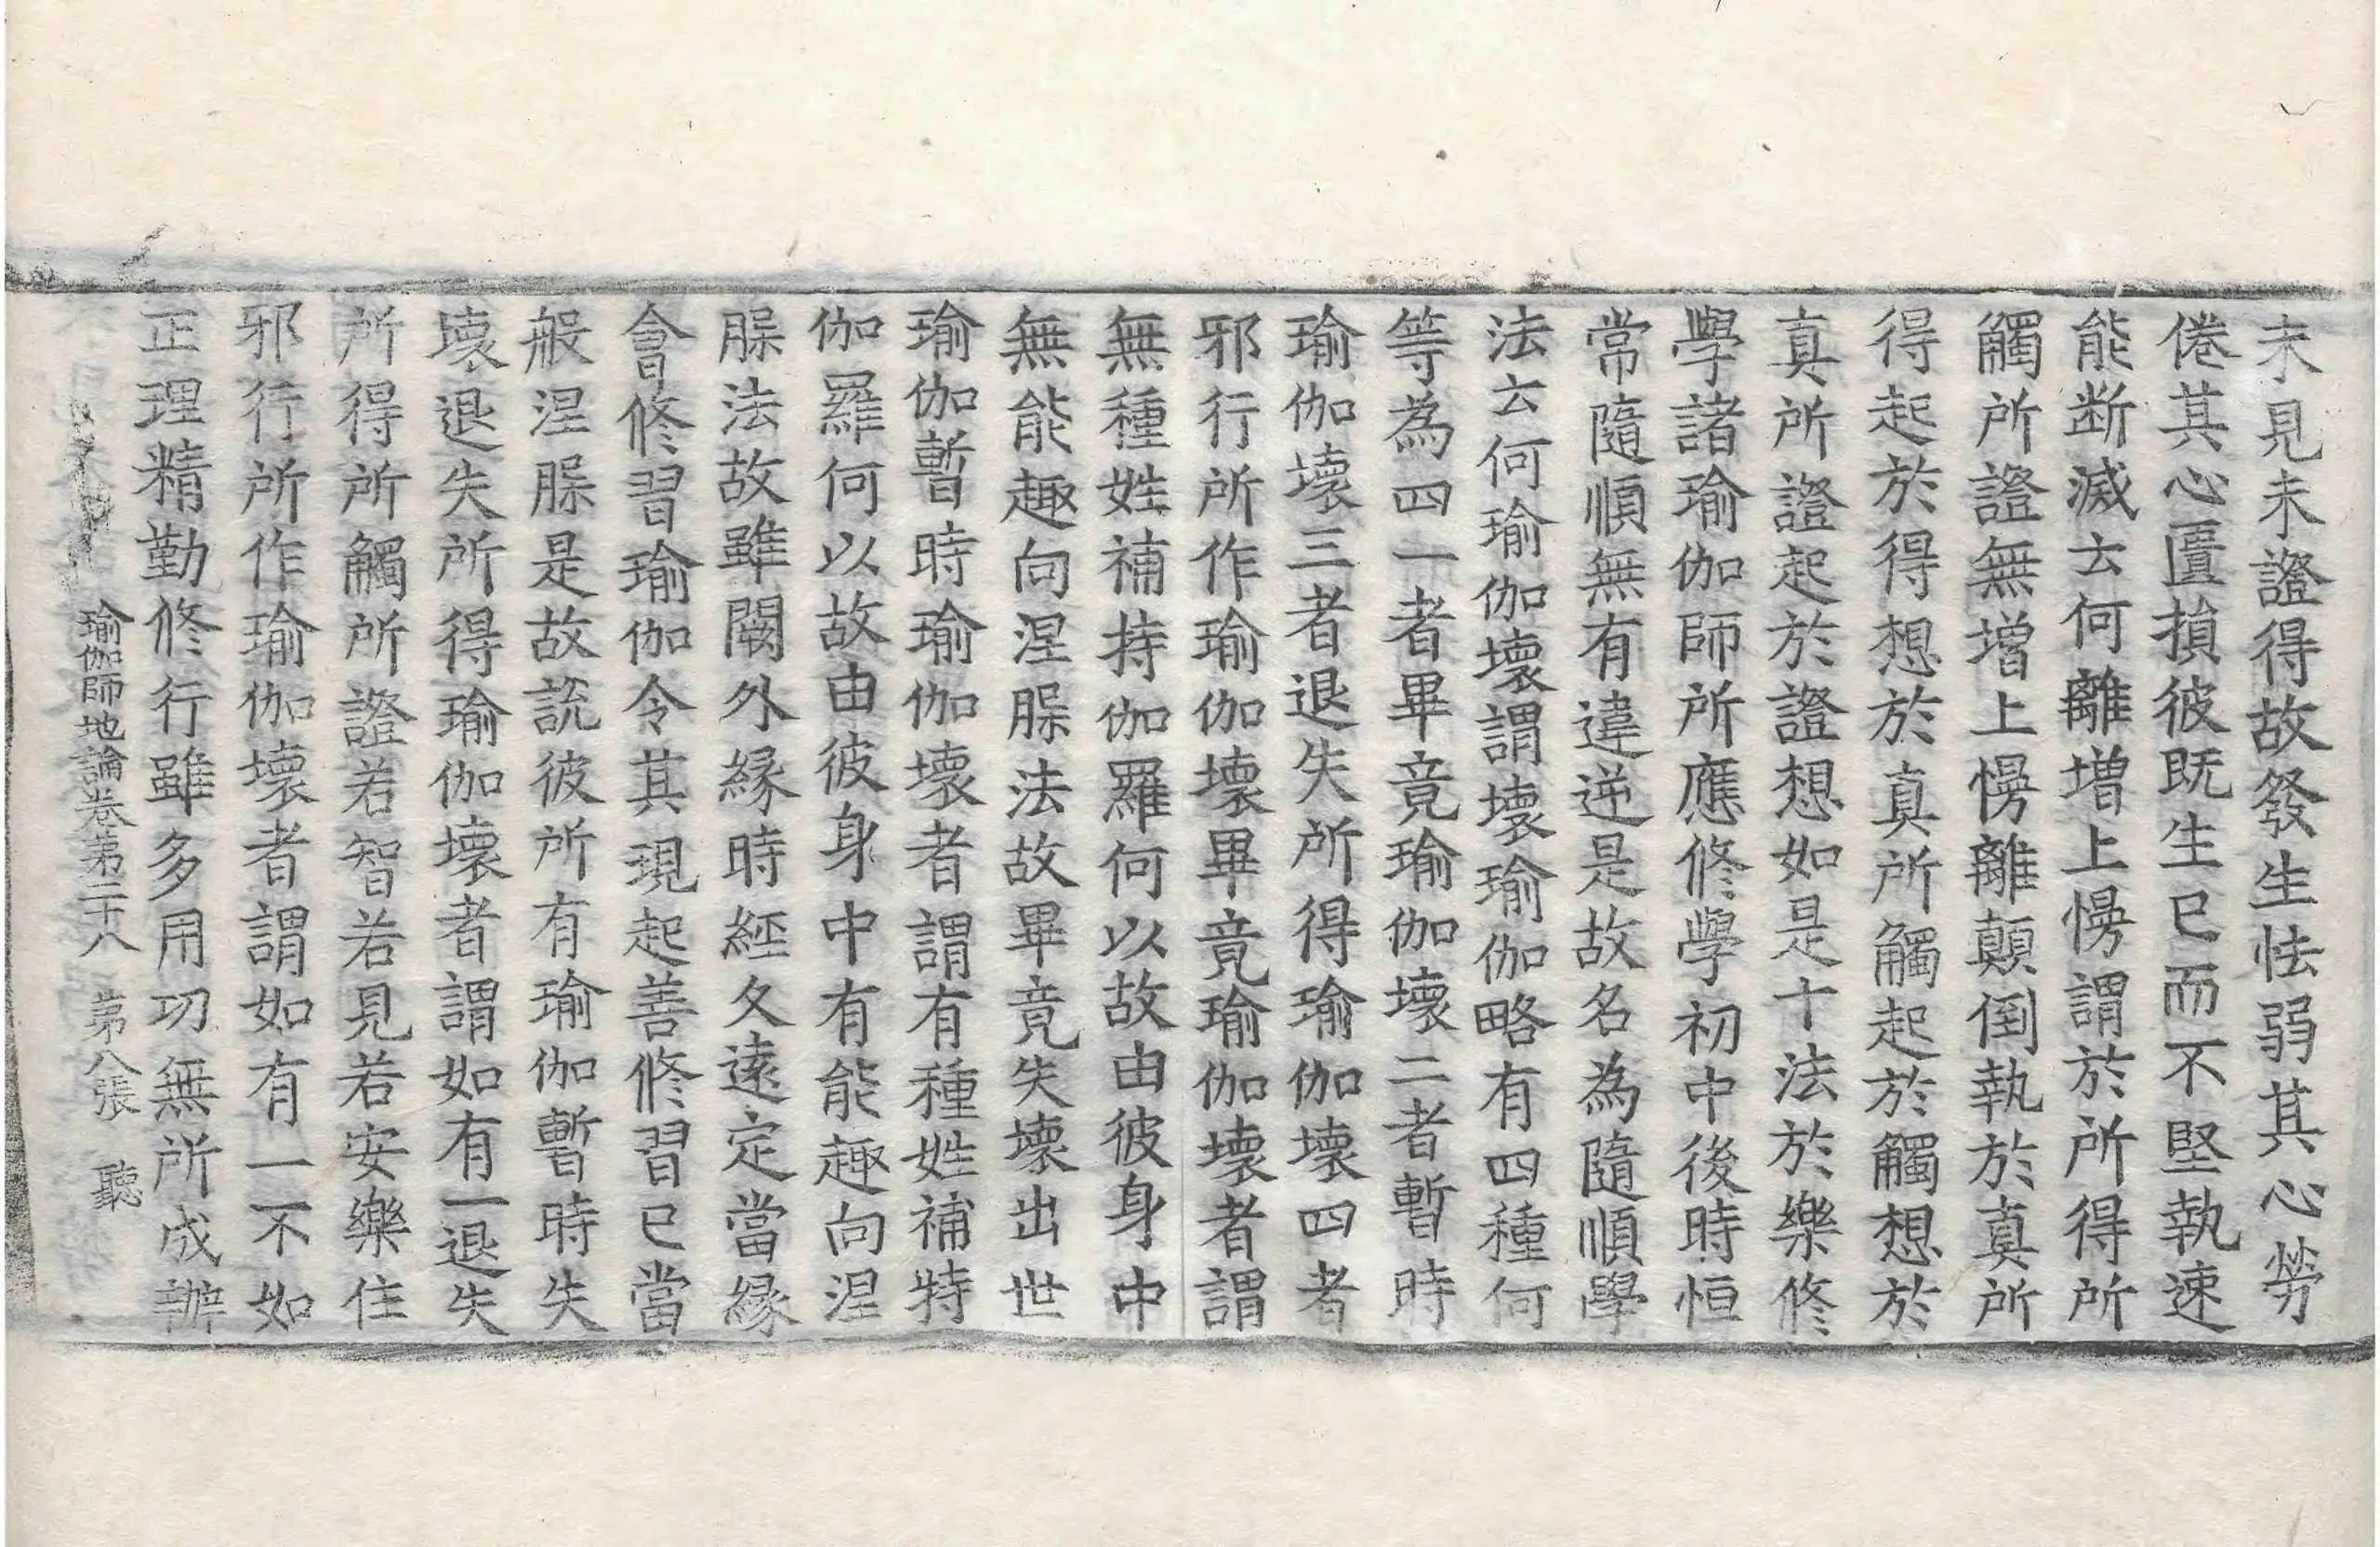 未見未證得故發生怯弱其心勞
倦其心匱損彼既生已而不堅執速
能断滅云何離增上慢謂於所得所
觸所證無增上慢離顛倒執於真所
得起於得想於真所觸起於觸想於
真所證起於證想如是十法於樂修
學諸瑜伽師所應修學初中後時恒
常隨順無有違逆是故名為隨順學
法云何瑜伽壞謂壞瑜伽略有四種何
等為四一者畢竟瑜伽壞二者暫時
瑜伽壞三者退失所得瑜伽壞四者
邪行所作瑜伽壞畢竟瑜伽壞者謂
無種姓補特伽羅何以故由彼身中
無能趣向涅槃法故畢竟失壞出世
瑜伽暫時瑜伽壞者謂有種姓補特
伽羅何以故由彼身中有能趣向涅
槃法故雖闕外緣時經久遠定當緣
會修習瑜伽令其現起善修習已當
般涅槃是故說彼所有瑜伽暫時失
壞退失所得瑜伽壞者謂如有一退失
所得所觸所證若智若見若安樂住
邪行所作瑜伽壞者謂如有一不如
正理精勤修行雖多用功無所成辦
瑜伽師地論卷第二十八 第八張 聽